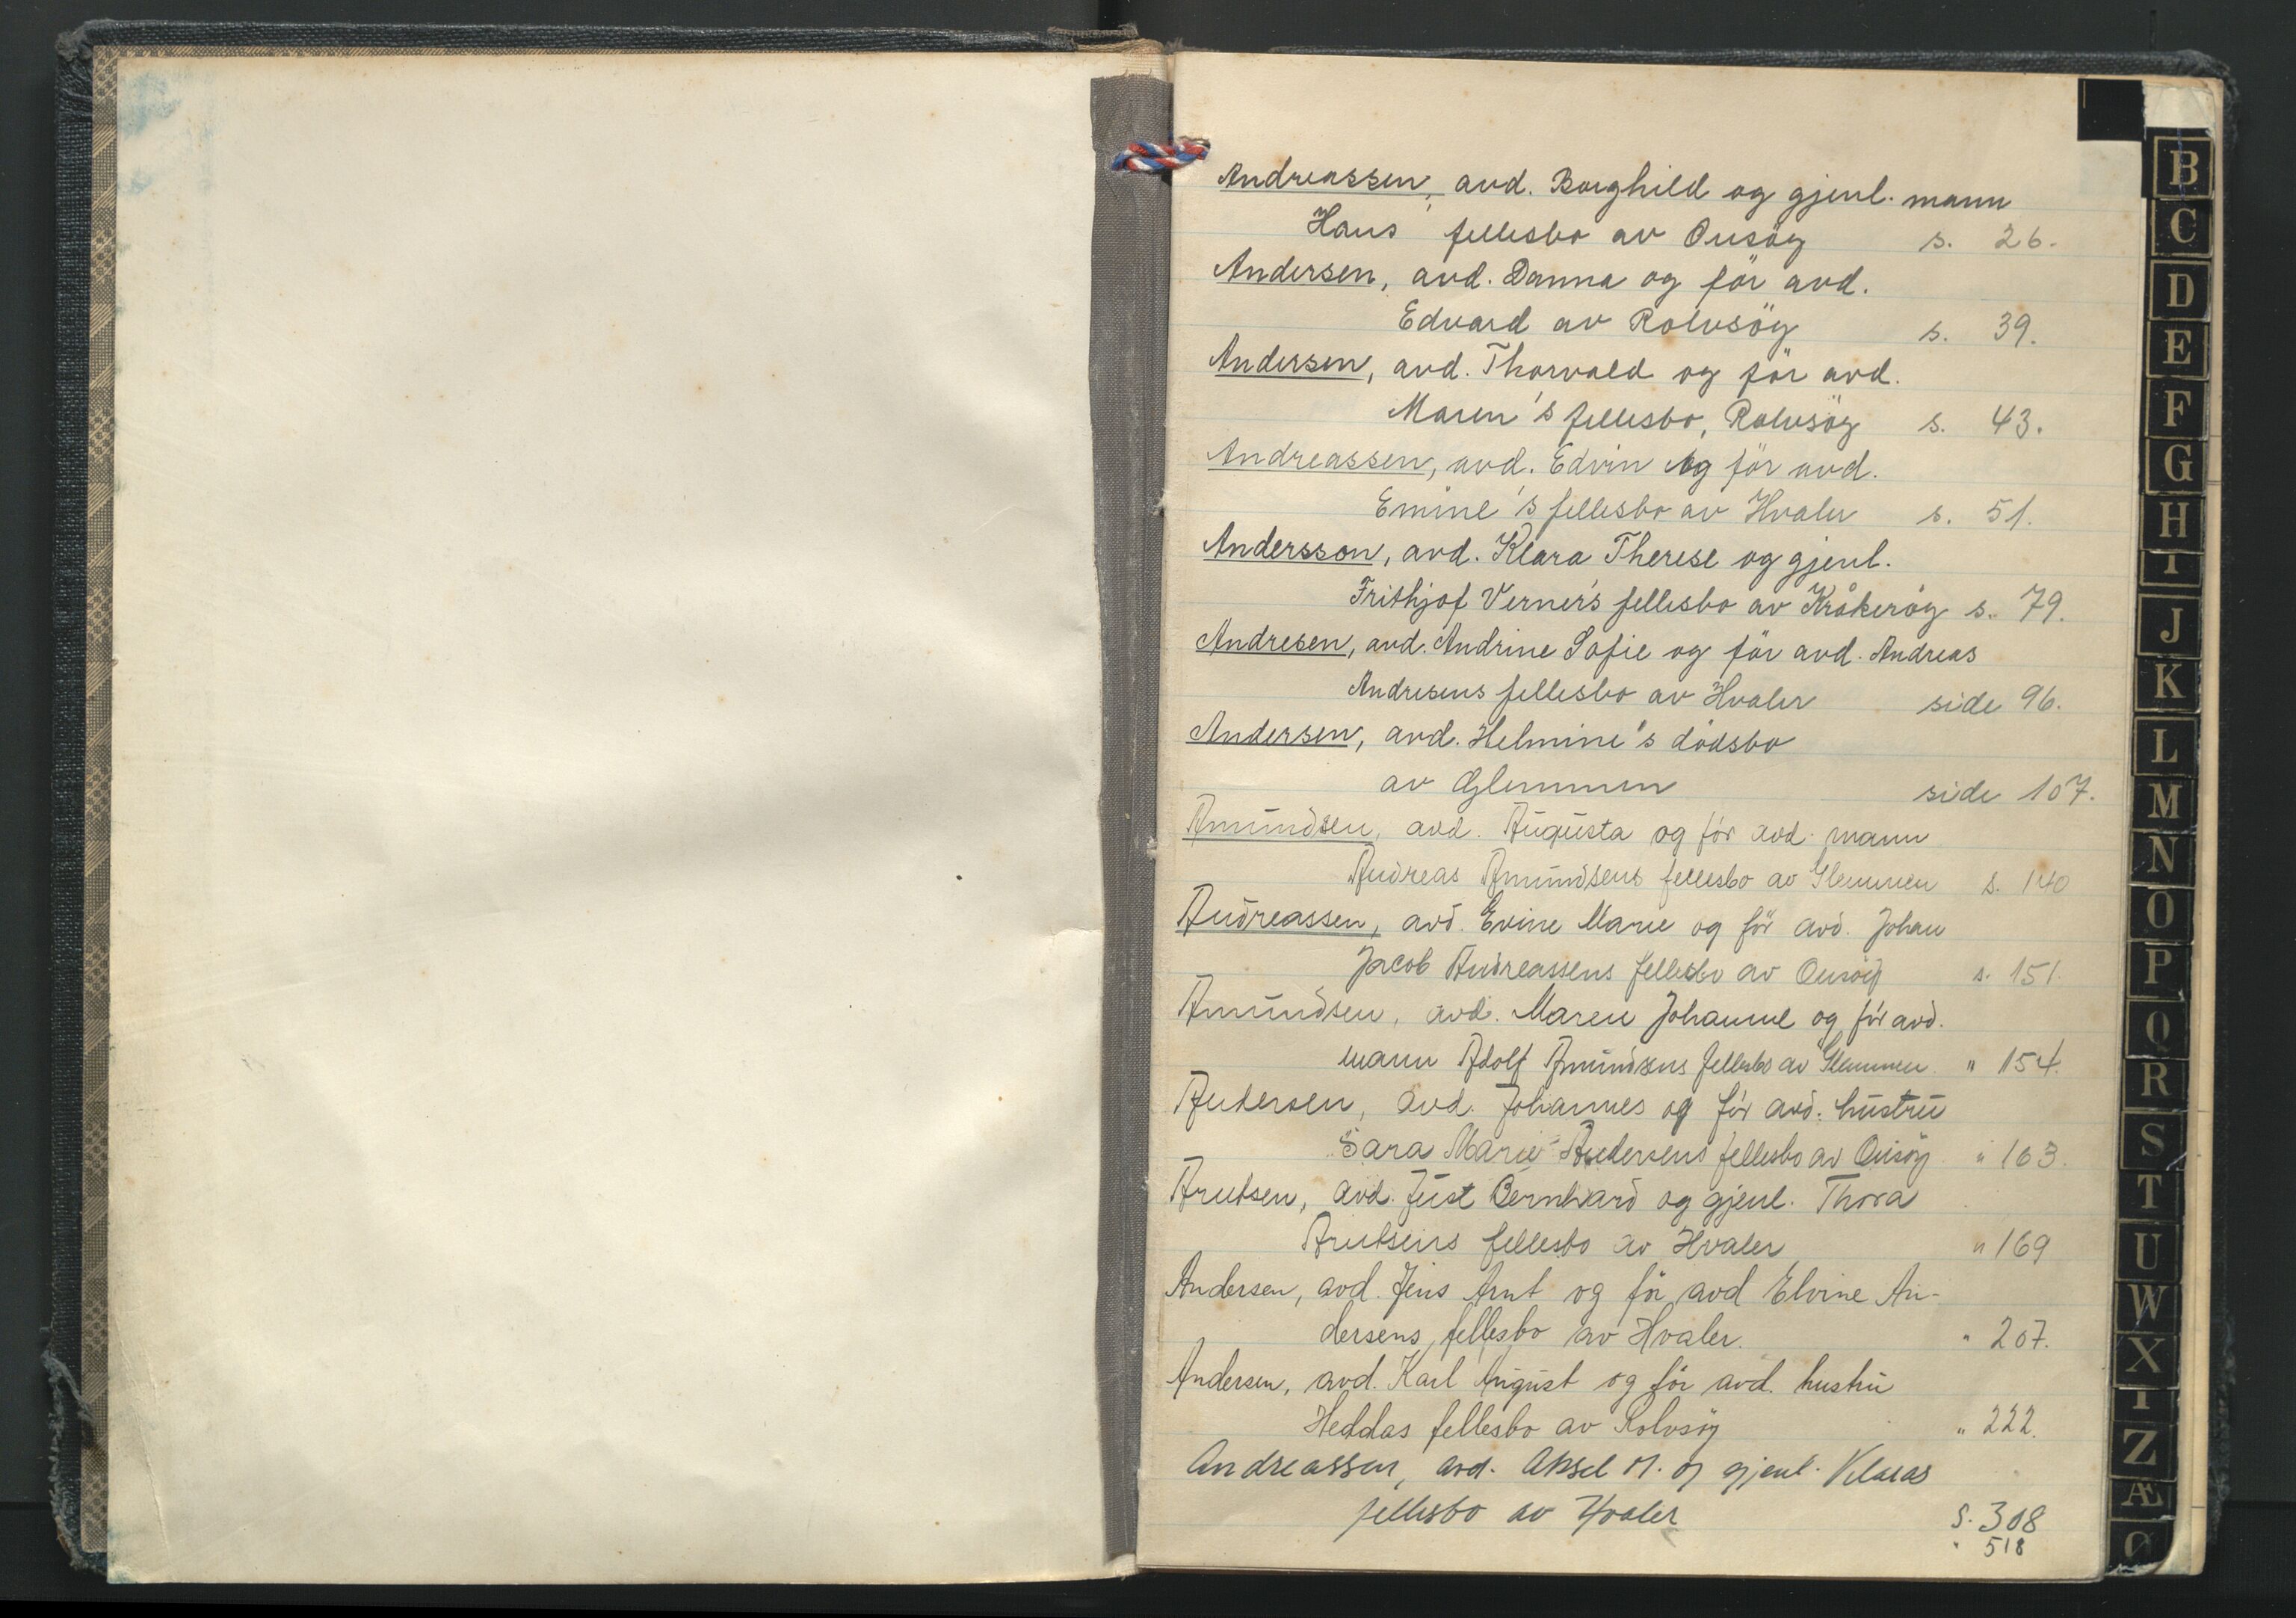 Andreassen, avd. Borghild og gjenl. mann
Hans' fellesbo av Onsöy s. 26.
Andersen, avd. Danna og för avd.
Edvard av Rolvsöy s. 39.
Andersen, avd. Thorvald og för avd.
Maren's fellesbo, Rolvsöy s. 43.
Andreassen, avd. Edvin og för avd.
Emine's fellesbo av Hvaler s. 51.
Andersson, avd. Klara Therese og gjenl.
Frithjof Verner's fellesbo av Kråkeröy s. 79.
Andresen, avd. Andrine Sofie og för avd. Andreas
Andresens fellesbo av Hvaler side 96.
Andersen, avd. Helmine's dödsbo
av Glemmen side 107.
Amundsen, avd. Augusta og för avd. mann
Andreas Amundsens fellesbo av Glemmen s. 140
Andreassen, avd. Evine Marie og för avd. Johan
Jacob Andreassens fellesbo av Onsöy s. 151.
Amundsen, avd. Maren Johanne og för avd.
mann Adolf Amundsens fellesbo av Glemmen. " 154.
Andersen, avd. Johannes og för avd. hustru
Sara Marie Andersens fellesbo av Onsöy " 163.
Arntsen, avd. Just Bernhard og gjenl. Thora
Arntsens fellesbo av Hvaler " 169
Andersen, avd. Jens Arnt og för avd Elvine An-
dersens fellesbo av Hvaler. " 207.
Andersen, avd. Karl August og för avd. hustru
Heddas fellesbo av Rolvsöy " 222.
Andreassen, avd. Aksel M. og gjenl.
fellesbo av Hvaler s. 308
" 518
B
C
D
E
F
G
H
I
J
K
L
M
N
O
P
Q
R
S
T
U
W
X
Y
Z
Æ